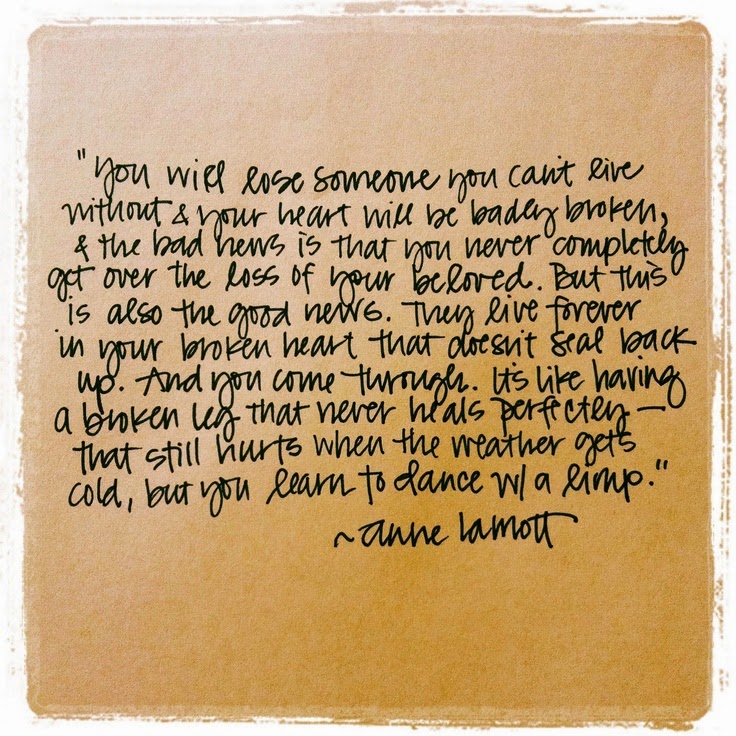 "you will lose someone you can't live
without & your heart will be badly broken,
& the bad news is that you never completely
get over the loss of your beloved. But this
is also the good news. They live forever
in your broken heart that doesn't seal back
up. And you come through. It's like having
a broken leg that never heals perfectly —
that still hurts when the weather gets
cold, but you learn to dance w/ a limp."
~anne lamott